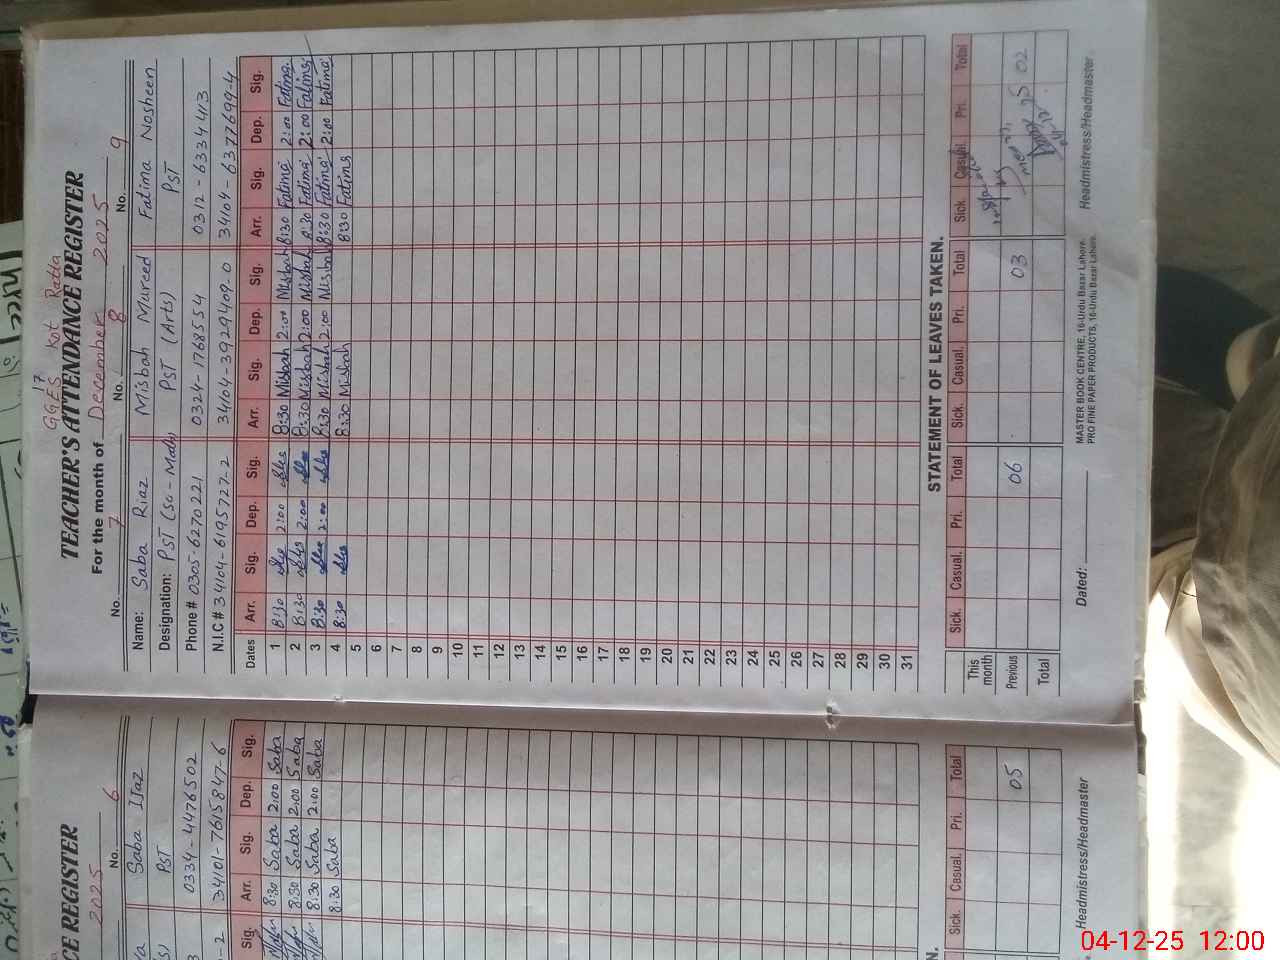 17
GGES Kot Ratta
TEACHER'S ATTENDANCE REGISTER
For the month of December 2025
No. 7 No. 8 No. 9
Name: Saba Riaz Misbah Mureed Fatima Nosheen
Designation: PST (Sc-Math) PST (Arts) PST
Phone # 0305-6270221 0324-1768554 0312-6334413
N.I.C # 34104-6195727-2 34104-3929409-0 34104-6377699-4
Dates Arr. Sig. Dep. Sig. Arr. Sig. Dep. Sig. Arr. Sig. Dep. Sig.
1 8:30 2:00 8:30 Misbah 2:00 Misbah 8:30 Fatima 2:00 Fatima
2 8:30 2:00 8:30 Misbah 2:00 Misbah 8:30 Fatima 2:00 Fatima
3 8:30 2:00 8:30 Misbah 2:00 Misbah 8:30 Fatima 2:00 Fatima
4 8:30 8:30 Misbah 8:30 Fatima
5
6
7
8
9
10
11
12
13
14
15
16
17
18
19
20
21
22
23
24
25
26
27
28
29
30
31
STATEMENT OF LEAVES TAKEN.
Sick. Casual. Pri. Total Sick. Casual. Pri. Total Sick. Casual. Pri. Total
This month
Previous 06 03 02
Total
Dated:
MASTER BOOK CENTRE, 16-Urdu Bazar Lahore.
PRO FINE PAPER PRODUCTS, 16-Urdu Bazar Lahore.
Headmistress/Headmaster
CE REGISTER
2025
No. 6
Saba Ijaz
PST
0334-4476502
34101-7615847-6
Sig. Arr. Sig. Dep. Sig.
8:30 Saba 2:00 Saba
8:30 Saba 2:00 Saba
8:30 Saba 2:00 Saba
8:30 Saba
N.
Sick. Casual. Pri. Total
05
Headmistress/Headmaster
04-12-25 12:00